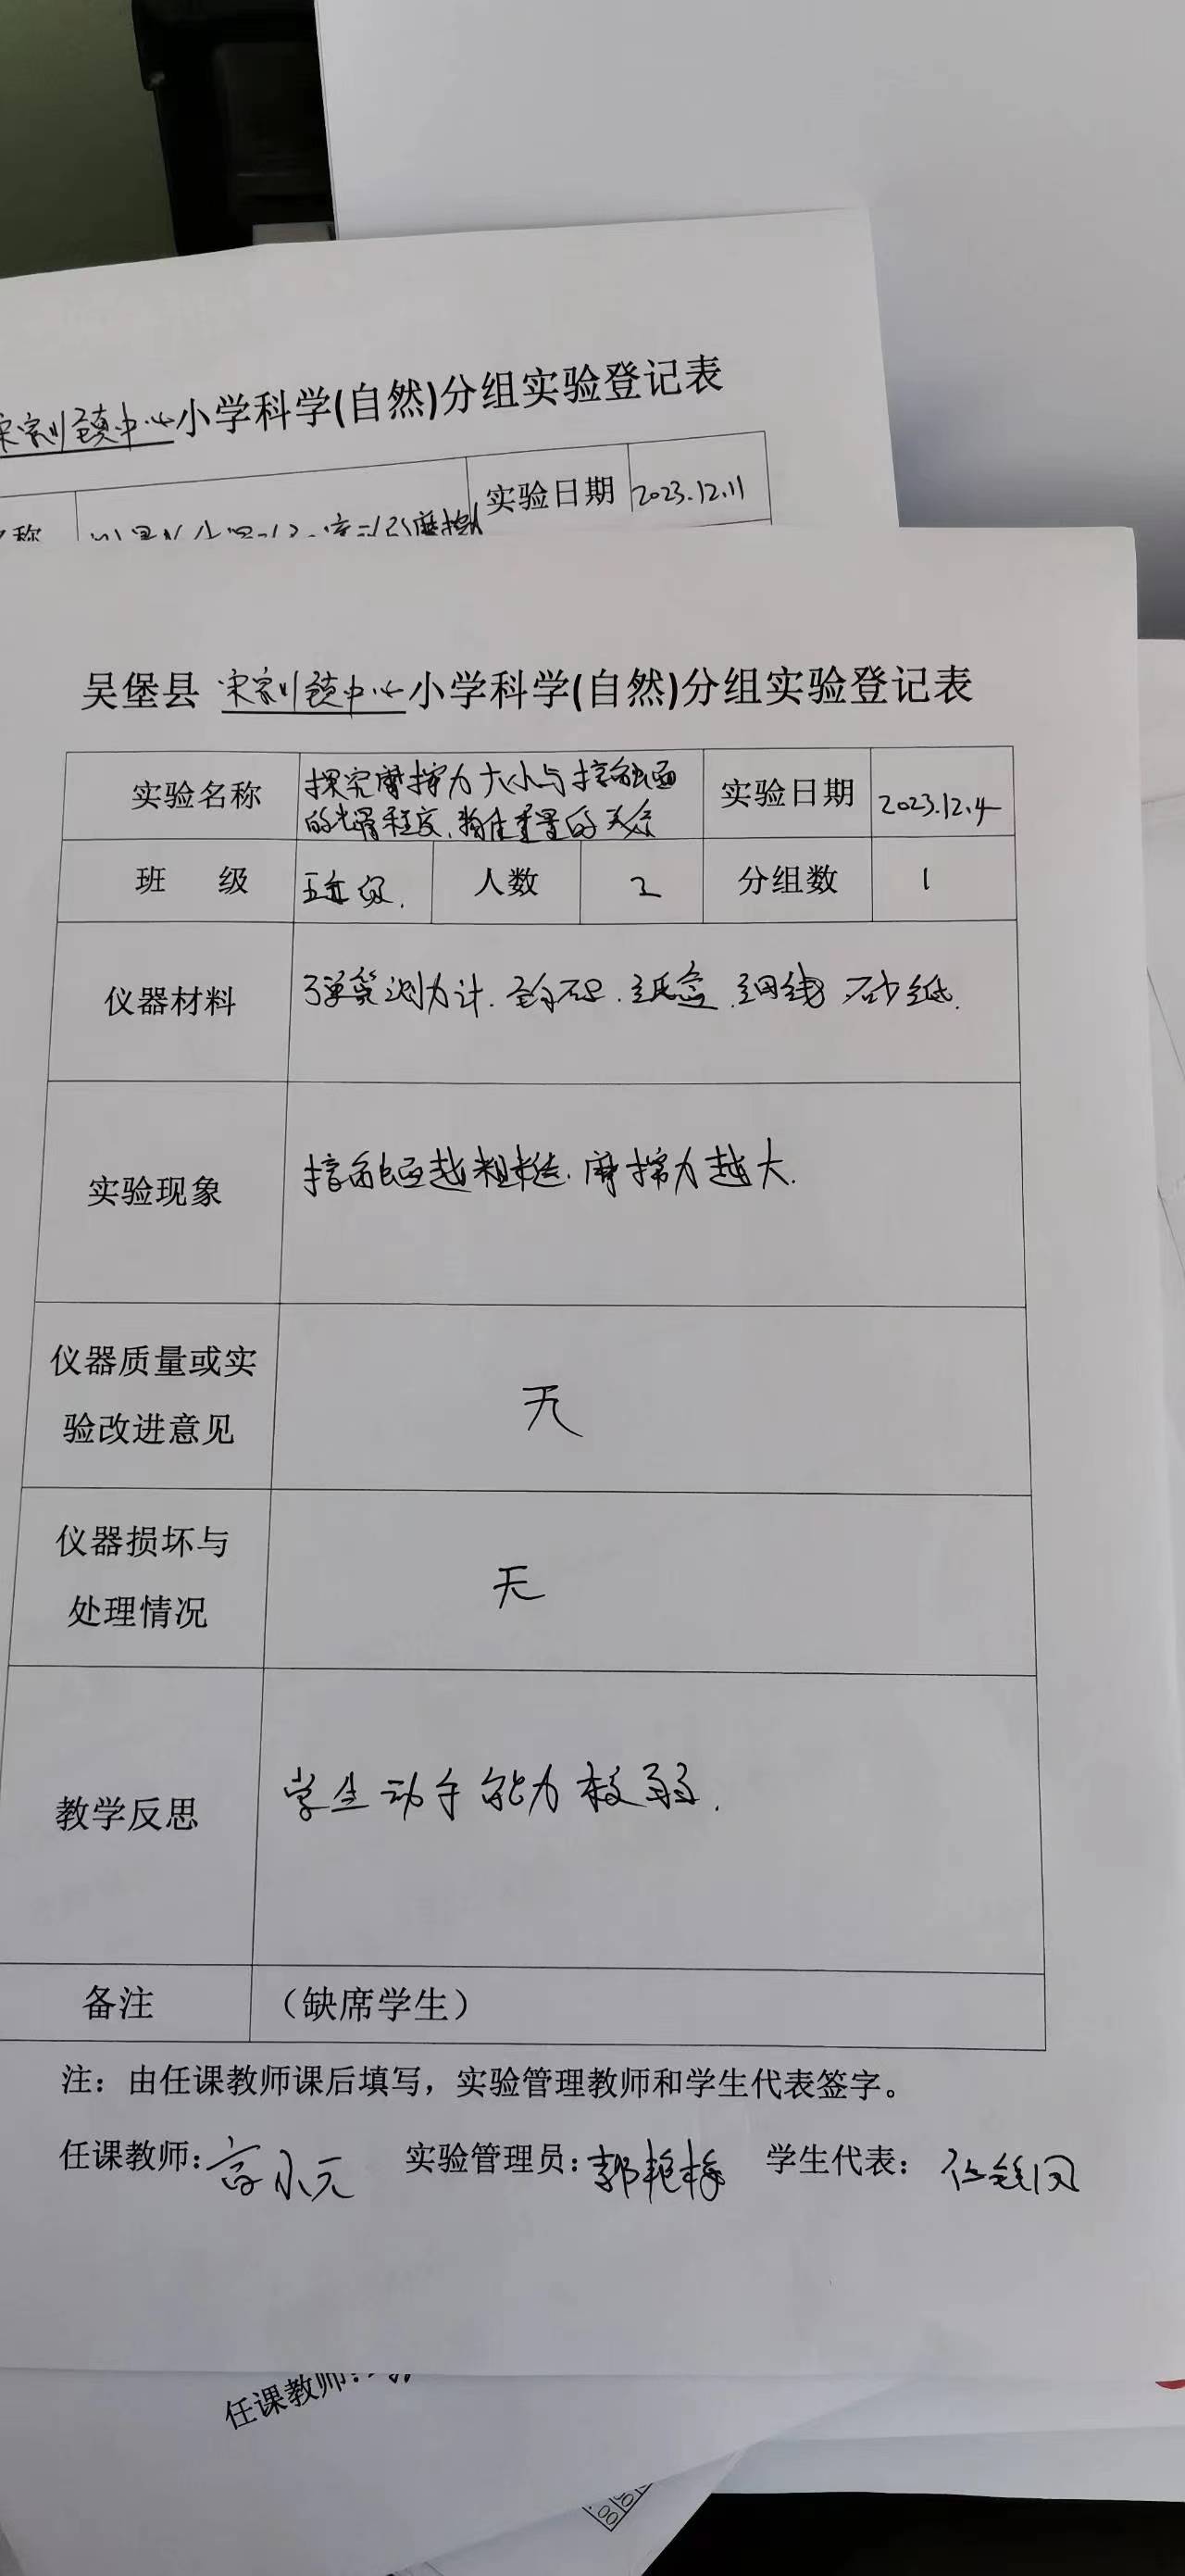 宋家川镇中心小学科学(自然)分组实验登记表
实验日期 2023.12.11
吴堡县 宋家川镇中心小学科学(自然)分组实验登记表
实验名称 探究摩擦力大小与接触面的光滑程度、物体重量的关系 实验日期 2023.12.4
班 级 五年级. 人数 2 分组数 1
仪器材料 弹簧测力计.钩码.纸盒.细线 砂纸.
实验现象 接触面越粗糙.摩擦力越大.
仪器质量或实
验改进意见
无
仪器损坏与
处理情况
无
教学反思 学生动手能力较弱.
备注 （缺席学生）
注：由任课教师课后填写，实验管理教师和学生代表签字。
任课教师: 实验管理员:郭艳梅 学生代表：
任课教师: